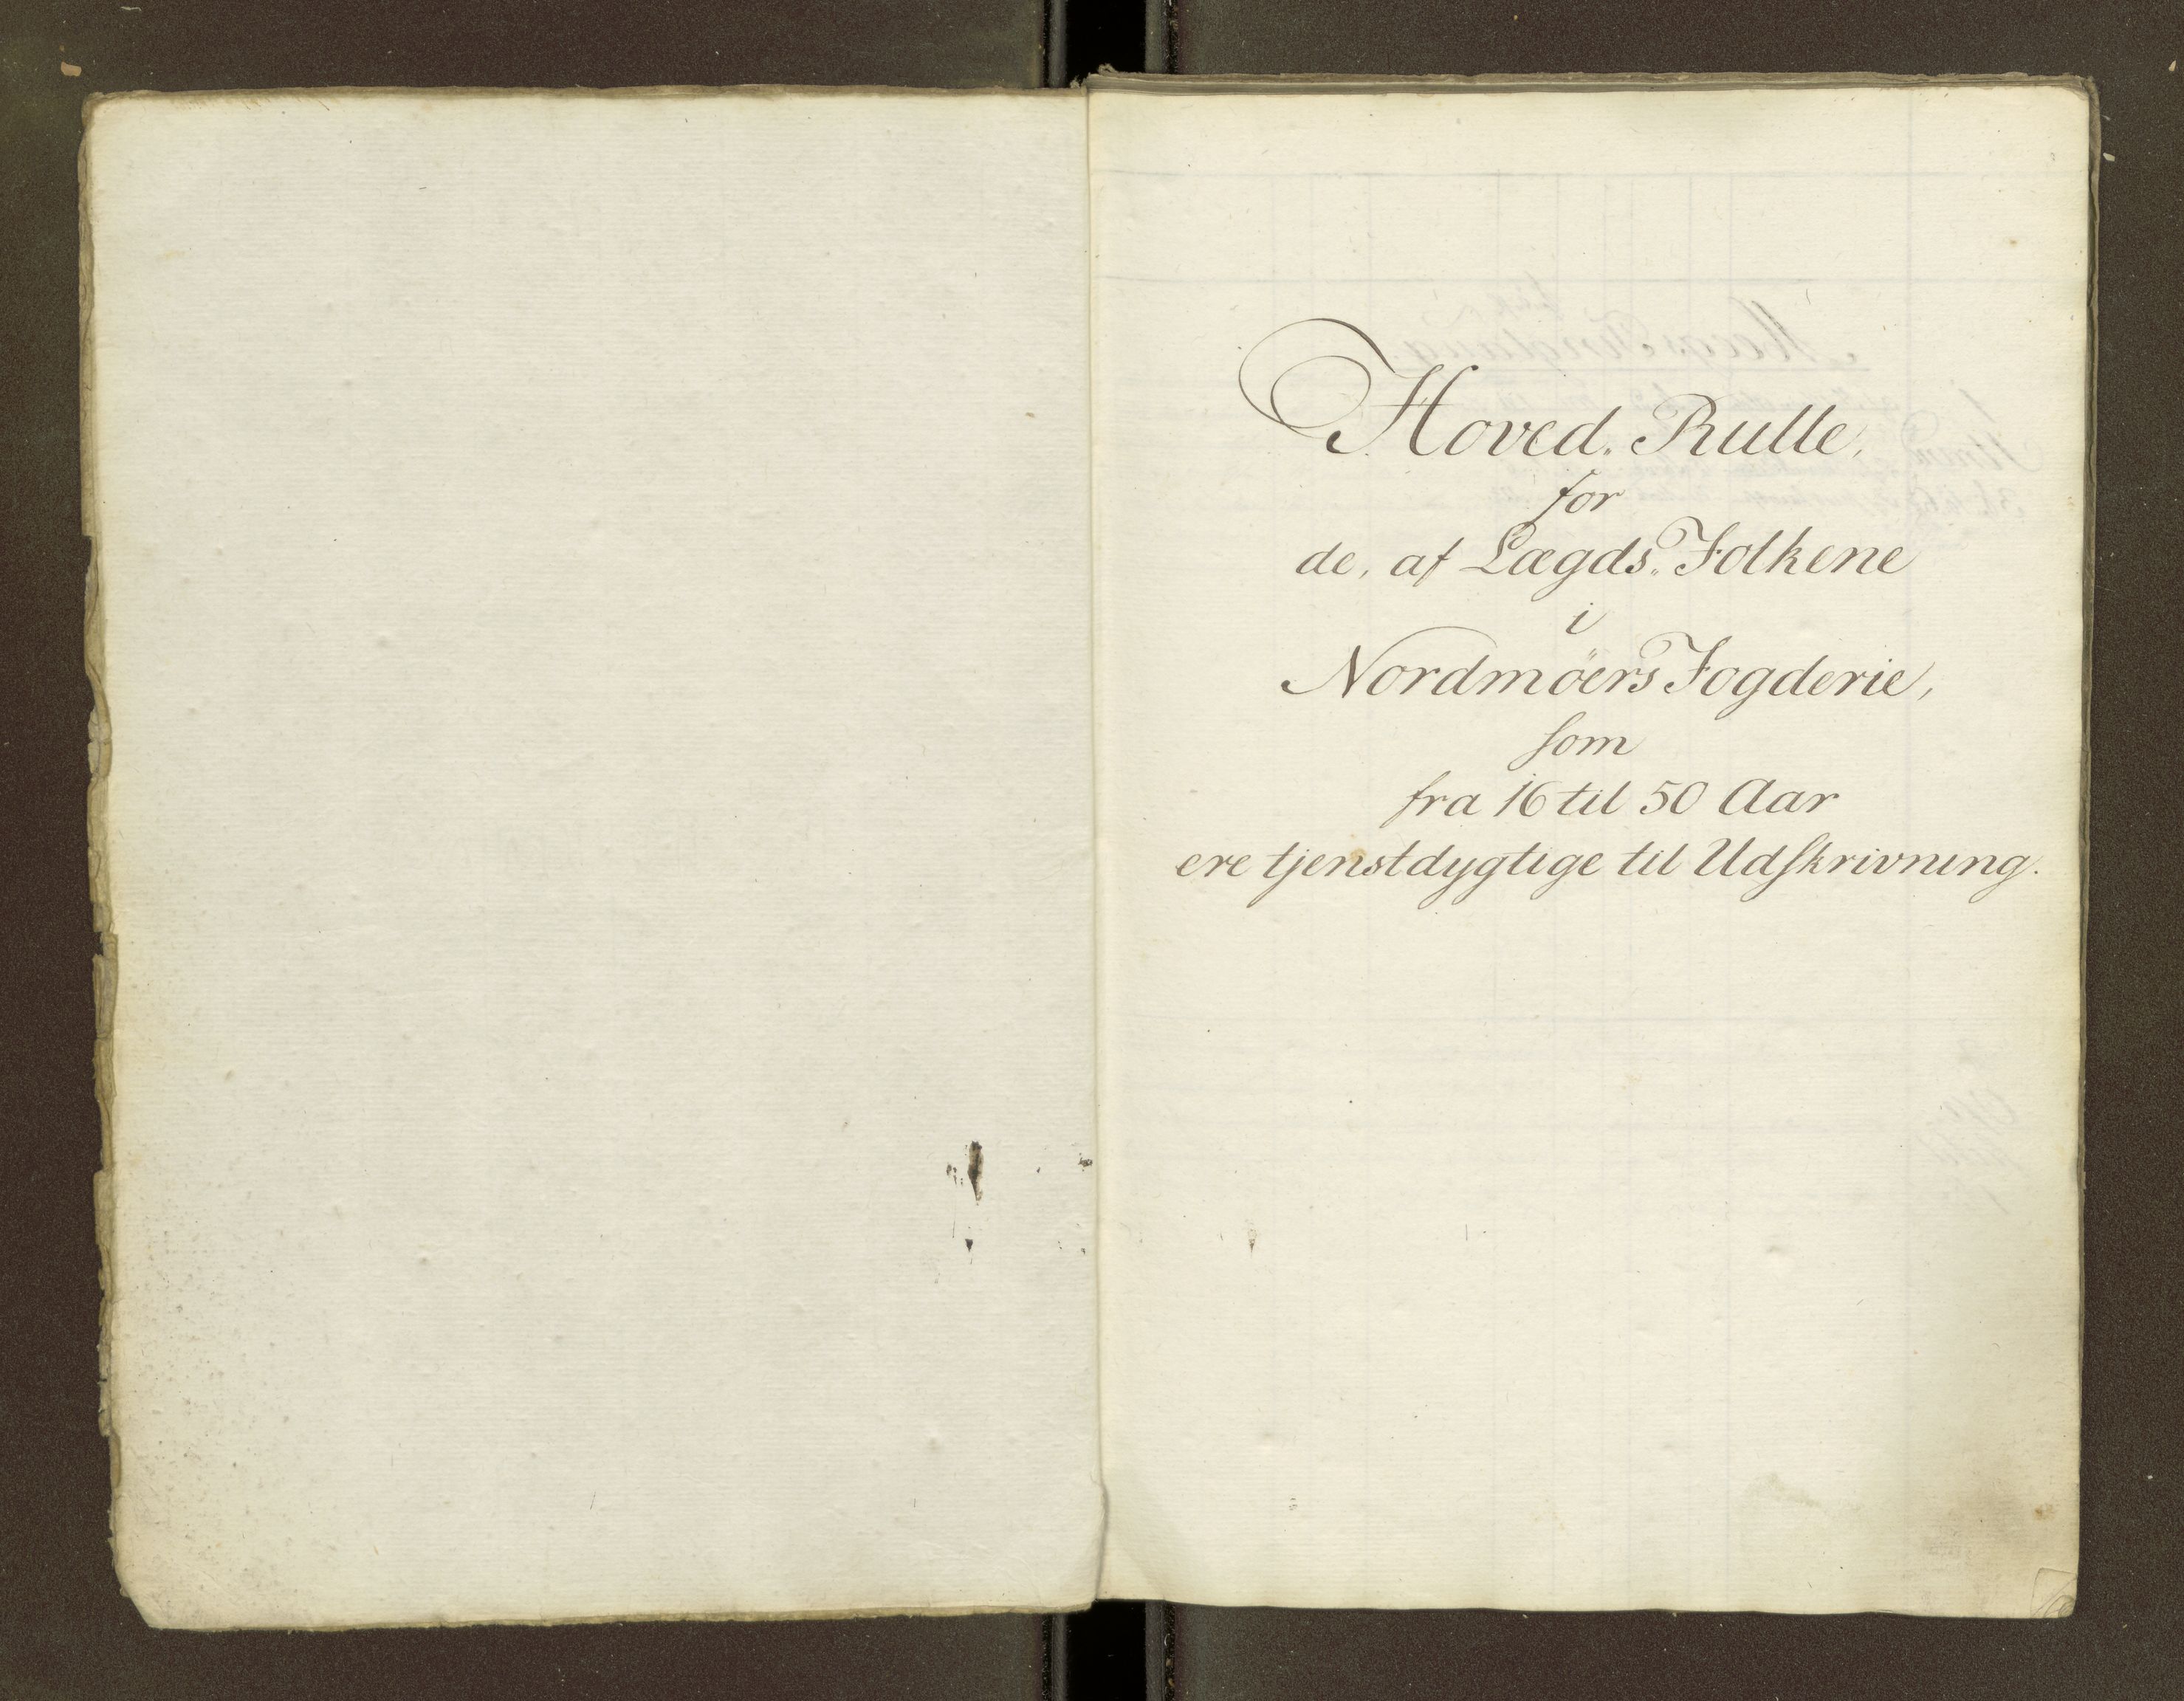 Hoved. Rulle,
for
de, af Lægds„Folkene
i
Nordmöers Fogderie,
som
fra 16 til 50 Aar
ere tjenstdygtige til Udskrivning.